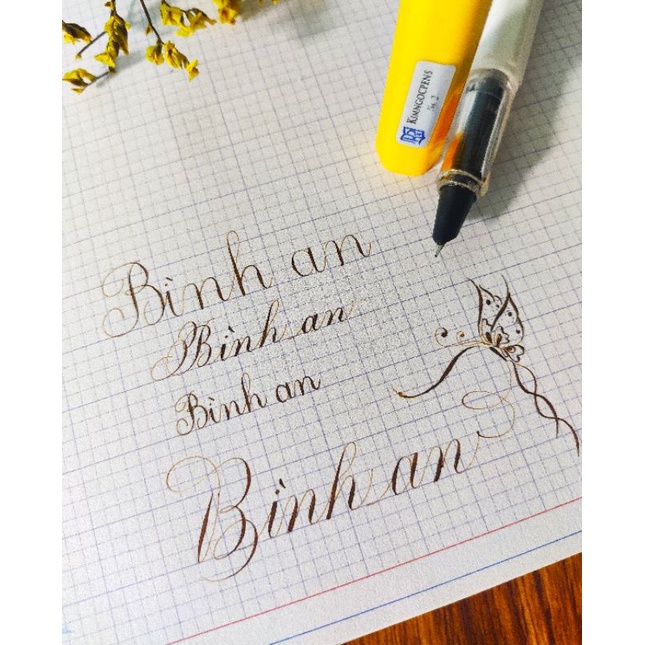 KIMNGOCPENS
Bình an
Bình an
Bình an
Bình an